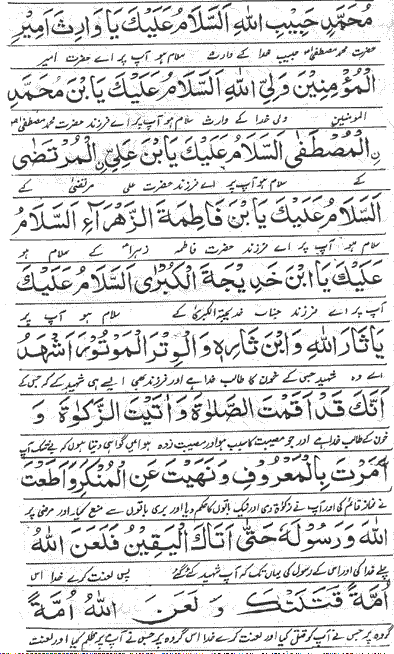 مُحَمَّدٍ حَبِيْبِ اللهِ اَلسَّلَامُ عَلَيْكَ يَا وَارِثَ اَمِيْرِ
حضرت محمد مصطفیٰ حبیب خدا کے وارث سلام ہو آپ پر اے حضرت امیر
الْمُؤْمِنِيْنَ وَلِيِّ اللهِ اَلسَّلَامُ عَلَيْكَ يَا بْنَ مُحَمَّدِ
المومنین ولی خدا کے وارث سلام ہو آپ پر اے فرزند حضرت محمد مصطفیٰ
نِ الْمُصْطَفٰى اَلسَّلَامُ عَلَيْكَ يَا بْنَ عَلِيِّ نِ الْمُرْتَضٰى
کے سلام ہو آپ پر اے فرزند حضرت علی مرتضیٰ کے
اَلسَّلَامُ عَلَيْكَ يَا بْنَ فَاطِمَةَ الزَّهْرَآءِ اَلسَّلَامُ
سلام ہو آپ پر اے فرزند حضرت فاطمہ زہرا کے سلام ہو
عَلَيْكَ يَا ابْنَ خَدِيْجَةَ الْكُبْرٰى اَلسَّلَامُ عَلَيْكَ
آپ پر اے فرزند جناب خدیجۃ الکبریٰ کے سلام ہو آپ پر
يَا ثَارَ اللهِ وَ ابْنَ ثَارِهٖ وَ الْوِتْرَ الْمَوْتُوْرَ اَشْهَدُ
اے وہ شہید جس کے خون کا طالب خدا ہے اور فرزند بھی ایسے ہی شہید کے کہ جس کے
اَنَّكَ قَدْ اَقَمْتَ الصَّلٰوةَ وَ اٰتَيْتَ الزَّكٰوةَ وَ
خون کے طالب خدا ہے اور جو مصیبت کا سبب ہوا اور مصیبت زدہ ہوا میں گواہی دیتا ہوں کہ بے شک آپ
اَمَرْتَ بِالْمَعْرُوْفِ وَ نَهَيْتَ عَنِ الْمُنْكَرِ وَ اَطَعْتَ
نے نماز قائم کی اور آپ نے زکوٰۃ دی اور نیک باتوں کا حکم دیا اور بری باتوں سے منع کیا اور مرضی پر
اللهَ وَ رَسُوْلَهٗ حَتّٰى اَتَاكَ الْيَقِيْنُ فَلَعَنَ اللهُ
چلے خدا کی اور اس کے رسول کی یہاں تک کہ آپ شہید کئے گئے پس لعنت کرے خدا اس
اُمَّةً قَتَلَتْكَ وَ لَعَنَ اللهُ اُمَّةً
گروہ پر جس نے آپ کو قتل کیا اور لعنت کرے خدا اس گروہ پر جس نے آپ پر ظلم کیا اور لعنت